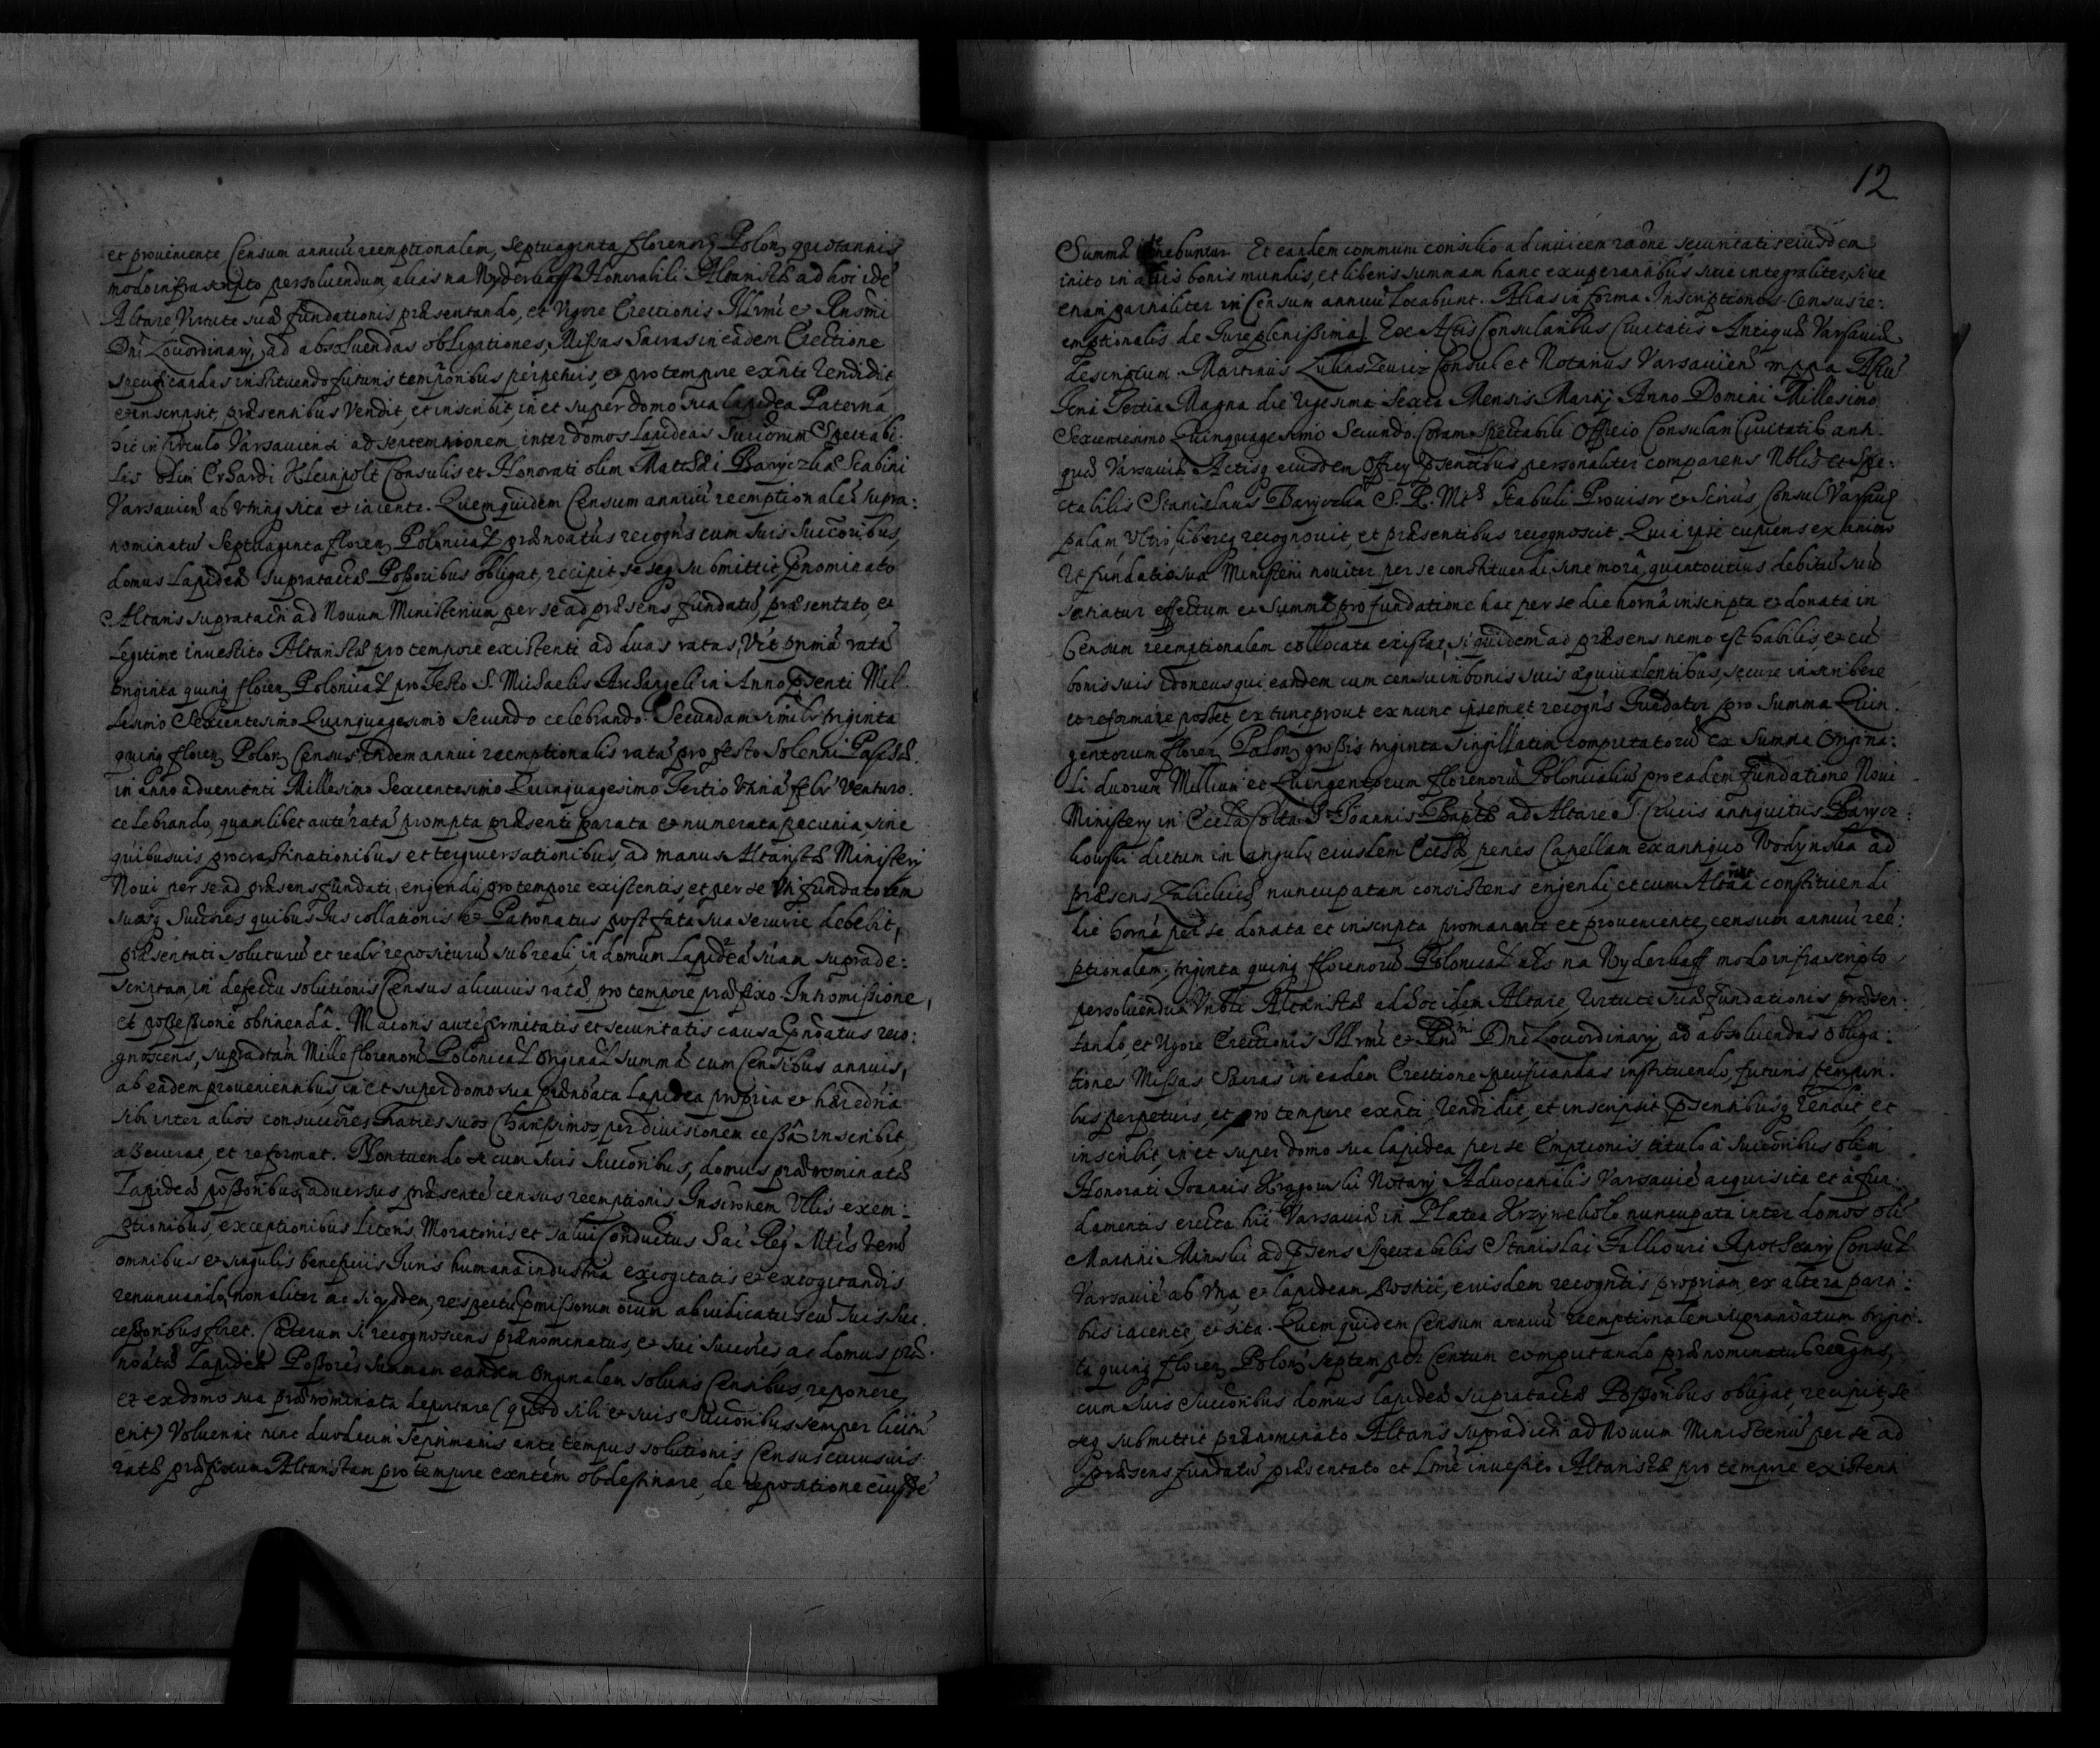 et proueniente Censum annuu reemptionalem, Septuaginta florenor Polon quotannis
modo infrascripto persoluendum alias na Wyderkaff Honorabili Altaristæ ad hoc ide
Altare, Virtute suæ fundationis præsentando, et Vigore Erectionis Illrmi et Rnsmi
Dni Louordinarij, ad absoluendas obligationes, Missas Sacras in eadem Erectione
specificandas instituendo futuris temporibus perpetuis, et pro tempore exnti Vendidit,
et inscripsit, præsentibus Vendit, et inscribit, in et super domo sua lapidea Paterna
hic in Circulo Varsauiensi ad septemtrionem inter domos Lapideas Succorum Spectabi:
lis olim Erhardi Kleinpolt Consulis et Honorati olim Matthæi Baryczka Scabini
Varsauien ab vtrinq sita et iacente. Quemquidem Censum annuu reemptionale supra:
nominatu Septuaginta floren Polonical prænoatus recogns cum suis Succoribus,
domus Lapideæ supratactæ Possoribus obligat, recipit se seq submittit, prnominato
Altaris supratacti ad Nouum Ministerium per se ad præsens fundatu, præsentato, et
Legitime inuestito Altaristæ pro tempore existenti ad duas ratas, Vit prima rata
triginta quinq floren Polonical pro Festo S. Michaelis Archangeli in Anno psenti Mil
lesimo Sexcentesimo Quinquagesimo Secundo celebrando. Secundam similr triginta
quinq floren Polon Census Itidem annui reemptionalis rata pro festo Solenni Paschæ.
in anno aduenienti Millesimo Sexcentesimo Quinquagesimo Tertio felr Venturo.
celebrando, quamlibet aute rata prompta præsenti parata et numerata pecunia, sine
quibusuis procrastinationibus et tergiuersationibus, ad manus Altaristæ Ministerij
Noui per se ad præsens fundati, erigendi, pro tempore existentis, et per se Vti fundatorem
suosq Succres quibus Ius collationis et Patronatus post fata sua seruire debebit,
præsentati soluturu et realr repositurū sub reali, in domum Lapidea suam suprade:
scriptam, in defectu solutionis Census alicuius ratæ, pro tempore præfixo. Intromissione,
et possessione obtinendâ. Maioris aute firmitatis et securitatis causa pnoatus reco:
gnoscens, supradtam Mille florenoru Polonical Original summa cum Censibus annuis,
ab eadem prouenientibus, in et super domo sua prænoata Lapidea propria et hæredria
sibi inter alios consuccres fratres suos Charissimos, per diuisionem cessa inscribit,
assecurat, et reformat. Non tuendo se cum suis Succoribus, domus prænominatæ
Lapideæ possoribus, aduersus præsente census reemptionis Inscronem Vllis exem:
ptionibus, exceptionibus Literis Moratoris et Salui Conductus Sac Reg Mtis Verū
omnibus et singulis beneficiis Iuris humana industria excogitatis et excogitandis
renunciando, non aliter ac si qsdem, respectu pmissorum oium abiudicatu seu suis Suc:
cessoribus foret. Cæterum si recognoscens prænominatus, et sui Succres, ac domus præ:
noatæ Lapideæ Possores Summam eandem originalem solutis Censibus, reponere,
et ex domo sua prænominata deportare (quod sibi et suis Succoribus semper licitu
erit) Voluerint tunc duodecim Septimanis ante tempus solutionis Census cuiusuis
ratæ præfixum Altaristam pro tempore exntem obdestinare, de repositione eiusde
12
Summæ tenebuntur. Et eandem communi consilio adinuicem raone securitatis eiusdem
inito in aliis bonis mundis, et liberis summam hanc exuperantibus, siue integraliter, siue
etiam partialiter in Censum annuu Locabunt. Alias in forma Inscriptionis Census re:
emptionalis de Iure plenissima. Ex Actis Consularibus Ciuitatis Antiquæ Varsauiæ
descriptum. Martinus Lukaszewic Consul et Notarius Varsauien mppa Actu
Feria Tertia Magna die Vigesima Sexta Mensis Martij Anno Domini Millesimo
Sexcentesimo Quinquagesimo Secundo. Coram Spectabili Officio Consulari Ciuitatis anti
quæ Varsauiæ Actisq eiusdem Officij psentibus personaliter comparens Nblis et Spe:
ctabilis Stanislaus Baryczka S. R. Mtis Stabuli Prouisor et Consul Varsauiæ
palam, Vltro, libereq recognouit, et præsentibus recognoscit. Quia ipse cupiens ex animo
Vt fundatio sua Ministerii nouiter per se constituendi, sine morâ quantocitius debitu suu
sortiatur effectum et Summa pro fundatione hac per se die hornâ inscripta et donata in
Censum reemptionalem collocata existat, siquidem ad præsens nemo est habilis, et cu
bonis suis idoneus qui eandem cum censu in bonis suis æquiualentibus, secure inscribere
et reformare posset, ex tunc prout ex nunc ipsemet recogns Fundator pro Summa Quin:
gentorum floren Polon grossis triginta singillatim computatoru ex Summa Origina:
li duorum Millium et Quingentorum florenoru Polonicaliu pro eadem fundatione Noui
Ministerij in Eccla Collta S. Ioannis Baptæ ad Altare S. Crucis antiquitus Barycz:
kowski dictum in angulo eiusdem Ecclæ, penes Capellam ex antiquo Wodynska ad
præsens nuncupatam consistens erigendi, et cum Altarista constituendi
die horna per se donata et inscripta promanante et proueniente, censum annuu ree:
ptionalem, triginta quinq florenoru Polonical als na Wyderkaff modo infrascripto
persoluendu Vnbli Altaristæ ad hoc idem Altare, Virtute suæ fundationis præsen:
tando, et Vigore Erectionis Illrmi et Rndmi Dni Louordinarij, ad absoluendas obliga:
tiones Missas Sacras in eadem Erectione specificandas instituendo, futuris tempori:
bus perpetuis, et pro tempore exnti, Vendidit, et inscripsit psentibusq Vendit, et
inscribit, in et super domo sua lapidea per se Emptionis titulo à Succoribus olim
Honorati Ioannis Kragowski Notarij Aduocatialis Varsauie acquisita et à fun:
damentis erecta hic Varsauiæ in Platea Krzywekolo nuncupata inter domos oli
Martini Minski ad psens Spectabilis Stanislai Falliouri Apothecarij Consul
Varsauie ab Vna, et lapideam eiusdem recogntis propriam, ex altera parti:
bus iacente, et sita. Quemquidem Censum annuu reemptionalem supranoatum trigin:
ta quinq floren Polon septem per Centum computando prænominatus recogns,
cum suis Succoribus domus lapideæ supratactæ Possoribus obligat, recipit, se
seq submittit prænominato Altaris supradicti ad Nouum Ministeriu per se ad
præsens fundatu præsentato et Ltime inuestito Altaristæ pro tempore existenti